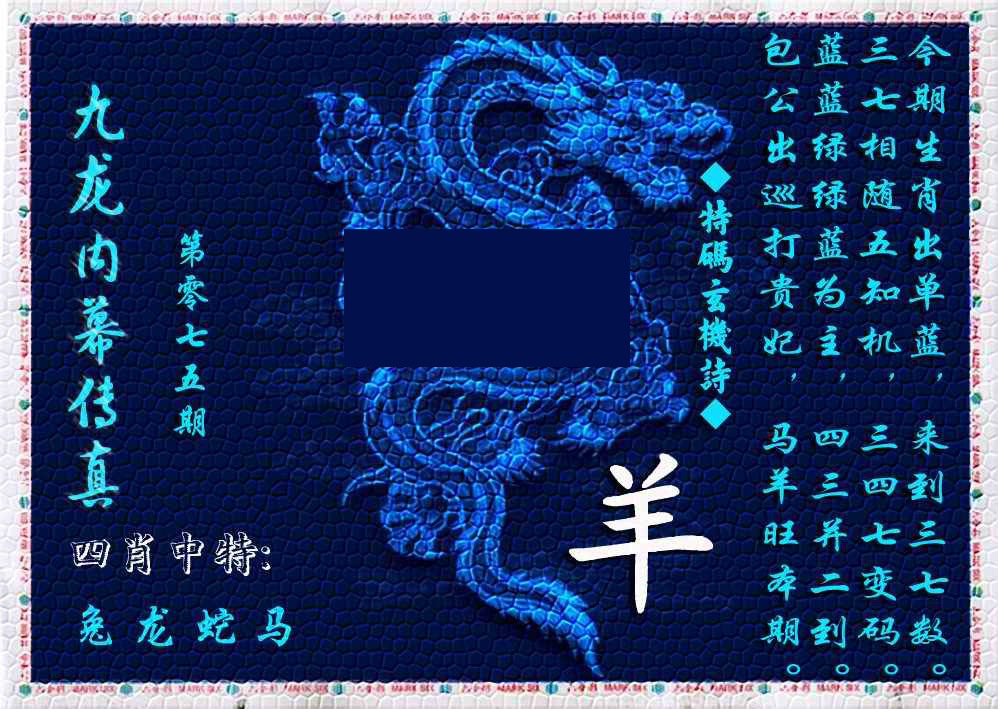 九龙内幕传真
第零七五期
四肖中特:
兔龙蛇马
羊
◆特碼玄機詩◆
今期生肖出单蓝,来到三七数。
三七相随五知机,三四七变码。
蓝蓝绿绿蓝为主,四三并二到。
包公出巡打贵妃,马羊旺本期。
六合彩 MARK SIX